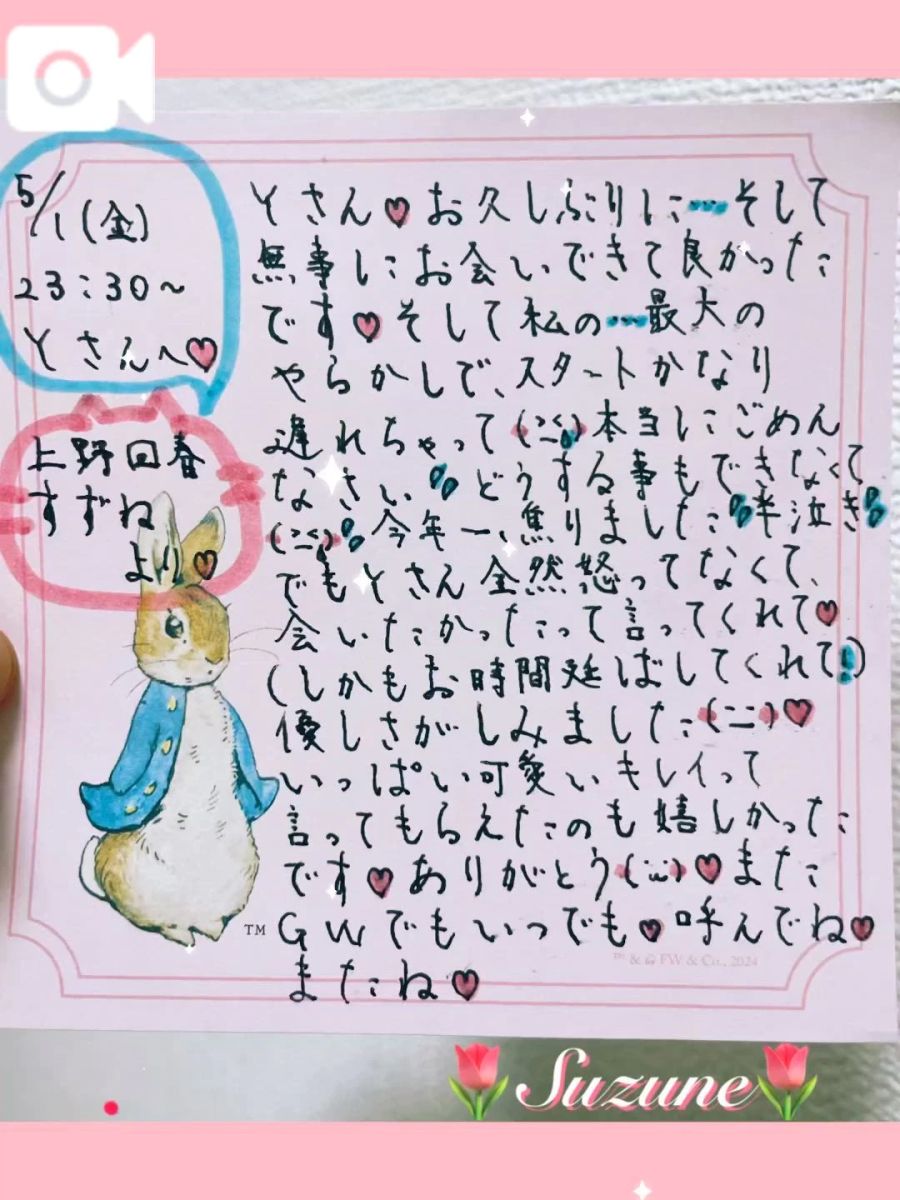 5/1(金)
23:30〜
Yさんへ♡
上野回春
すずね
より♡
Yさん♡お久しぶりに…そして
無事にお会いできて良かった
です♡そして私の…最大の
やらかしで、スタートかなり
遅れちゃって(>ㄑ)本当にごめん
なさい どうする事もできなくて
(>ㄑ)今年一、焦りました 半泣き
でもYさん全然怒ってなくて、
会いたかったって言ってくれて♡
(しかもお時間延ばしてくれて!)
優しさがしみました(ニニ)♡
いっぱい可愛いキレイって
言ってもらえたのも嬉しかった
です♡ありがとう(¨)♡また
GWでもいつでも♡呼んでね♡
またね♡
TM
™ & © FW & Co., 2024
Suzune